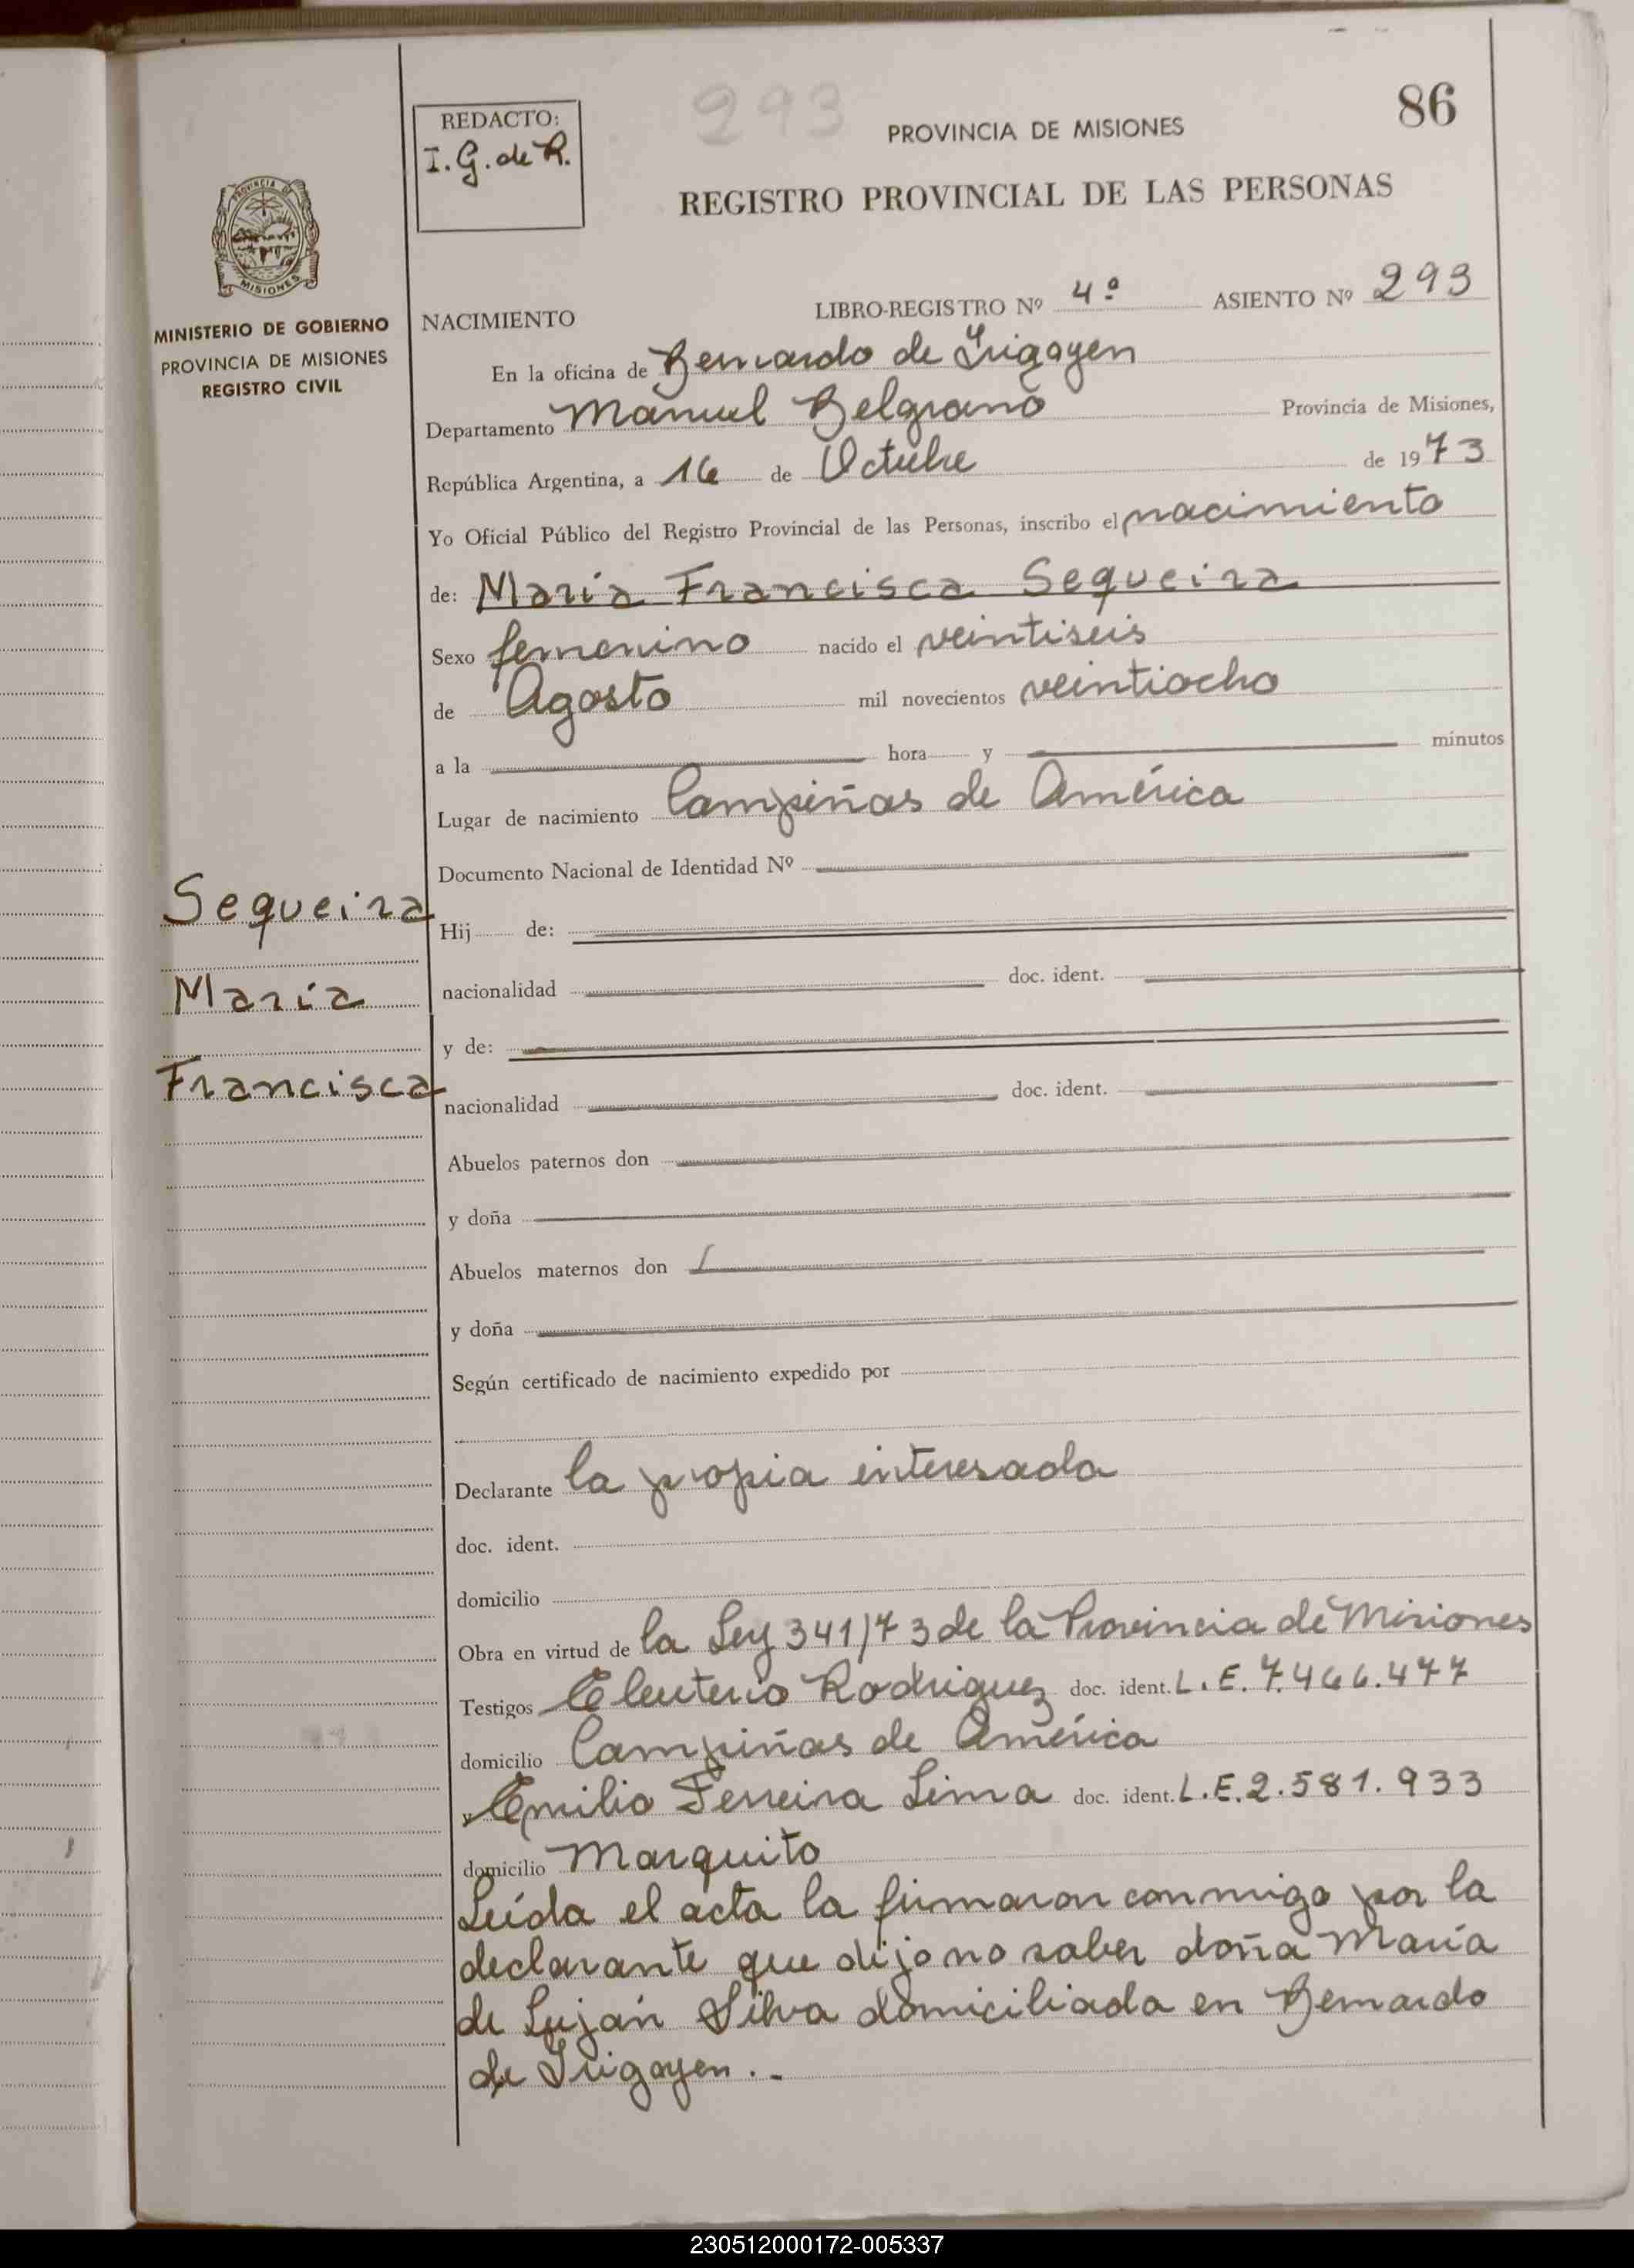 86
293
REDACTO:
I. G. de R.
PROVINCIA DE MISIONES
REGISTRO PROVINCIAL DE LAS PERSONAS
PROVINCIA DE
MISIONES
MINISTERIO DE GOBIERNO
PROVINCIA DE MISIONES
REGISTRO CIVIL
NACIMIENTO LIBRO-REGISTRO Nº 4º ASIENTO Nº 293
En la oficina de Bernardo de Irigoyen
Departamento Manuel Belgrano Provincia de Misiones,
República Argentina, a 16 de Octubre de 1973
Yo Oficial Público del Registro Provincial de las Personas, inscribo el nacimiento
de: María Francisca Sequeira
Sexo femenino nacido el veintiseis
de Agosto mil novecientos veintiocho
a la hora y minutos
Lugar de nacimiento Campiñas de América
Documento Nacional de Identidad Nº
Sequeira
María
Francisca
Hij de:
nacionalidad doc. ident.
y de:
nacionalidad doc. ident.
Abuelos paternos don
y doña
Abuelos maternos don
y doña
Según certificado de nacimiento expedido por
Declarante la propia interesada
doc. ident.
domicilio
Obra en virtud de la Ley 341/73 de la Provincia de Misiones
Testigos Eleuterio Rodriguez doc. ident. L. E. 7.466.477
domicilio Campiñas de América
y Emilio Ferreira Lima doc. ident. L.E. 2.581.933
domicilio Marquito
Leída el acta la firmaron conmigo por la
declarante que dijo no saber doña María
de Luján Silva domiciliada en Bernardo
de Irigoyen . -
230512000172-005337